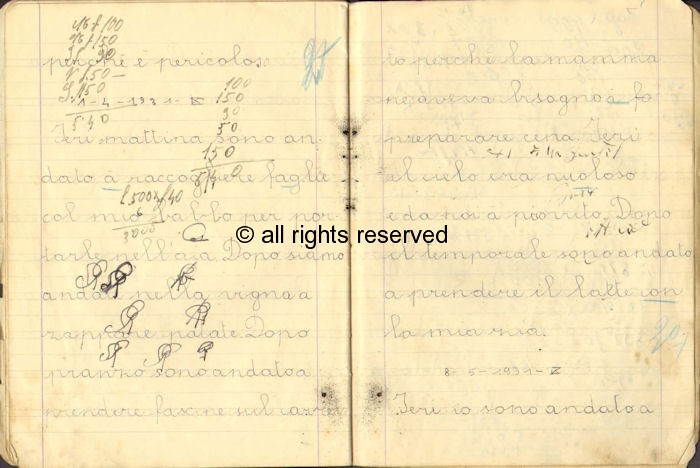 16 f 100
150
90
perchè è pericoloso
25
150
1-4-1931-IX
540
100
150
90
50
150
540
Ieri mattina sono an-
dato à raccogliere faglie
1500 x 40
3000
col mio babbo per por-
tarle nell'aia. Dopo siamo
andati nella vigna a
zappare patate. Dopo
pranzo sono andato a
prendere fascine sul carro
to perchè la mamma
ne aveva bisogno a fo
preparare cena. Ieri
il cielo era nuoloso
e da noi a piovuto. Dopo
il temporale sono andato
a prendere il latte con
la mia zia.
8-5-1931-IX
Ieri io sono andato a
© all rights reserved